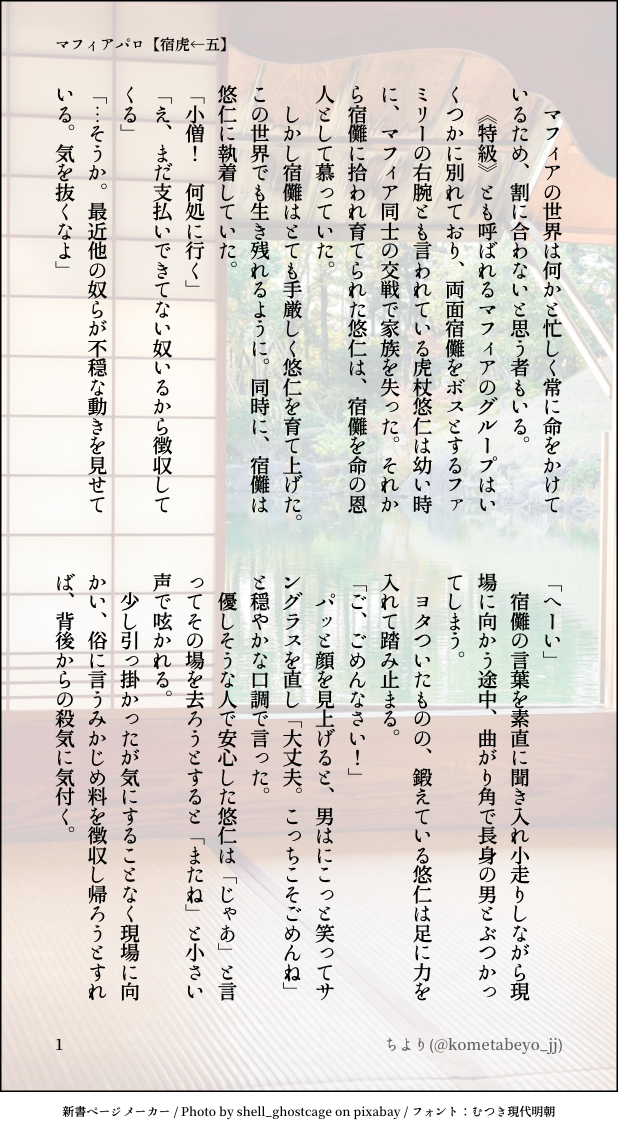 マフィアパロ【宿虎←五】
　マフィアの世界は何かと忙しく常に命をかけて
いるため、割に合わないと思う者もいる。
　《特級》とも呼ばれるマフィアのグループはい
くつかに別れており、両面宿儺をボスとするファ
ミリーの右腕とも言われている虎杖悠仁は幼い時
に、マフィア同士の交戦で家族を失った。それか
ら宿儺に拾われ育てられた悠仁は、宿儺を命の恩
人として慕っていた。
　しかし宿儺はとても手厳しく悠仁を育て上げた。
この世界でも生き残れるように。同時に、宿儺は
悠仁に執着していた。
「小僧！　何処に行く」
「え、まだ支払いできてない奴いるから徴収して
くる」
「…そうか。最近他の奴らが不穏な動きを見せて
いる。気を抜くなよ」
「へーい」
　宿儺の言葉を素直に聞き入れ小走りしながら現
場に向かう途中、曲がり角で長身の男とぶつかっ
てしまう。
　ヨタついたものの、鍛えている悠仁は足に力を
入れて踏み止まる。
「ご、ごめんなさい！」
　パッと顔を見上げると、男はにこっと笑ってサ
ングラスを直し「大丈夫。こっちこそごめんね」
と穏やかな口調で言った。
　優しそうな人で安心した悠仁は「じゃあ」と言
ってその場を去ろうとすると「またね」と小さい
声で呟かれる。
　少し引っ掛かったが気にすることなく現場に向
かい、俗に言うみかじめ料を徴収し帰ろうとすれ
ば、背後からの殺気に気付く。
1
ちより(@kometabeyo_jj)
新書ページメーカー / Photo by shell_ghostcage on pixabay / フォント：むつき現代明朝